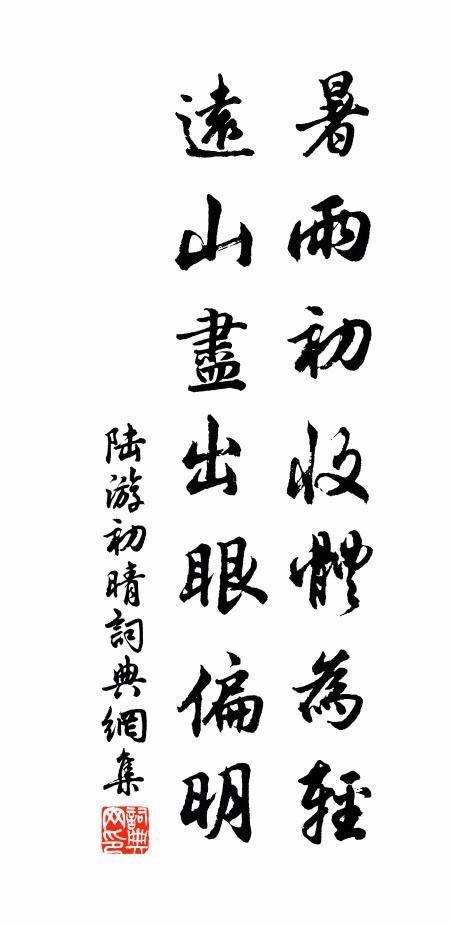 暑雨初收體為輕
遠山盡出眼偏明
陸游初晴詞典網集
詞典网印